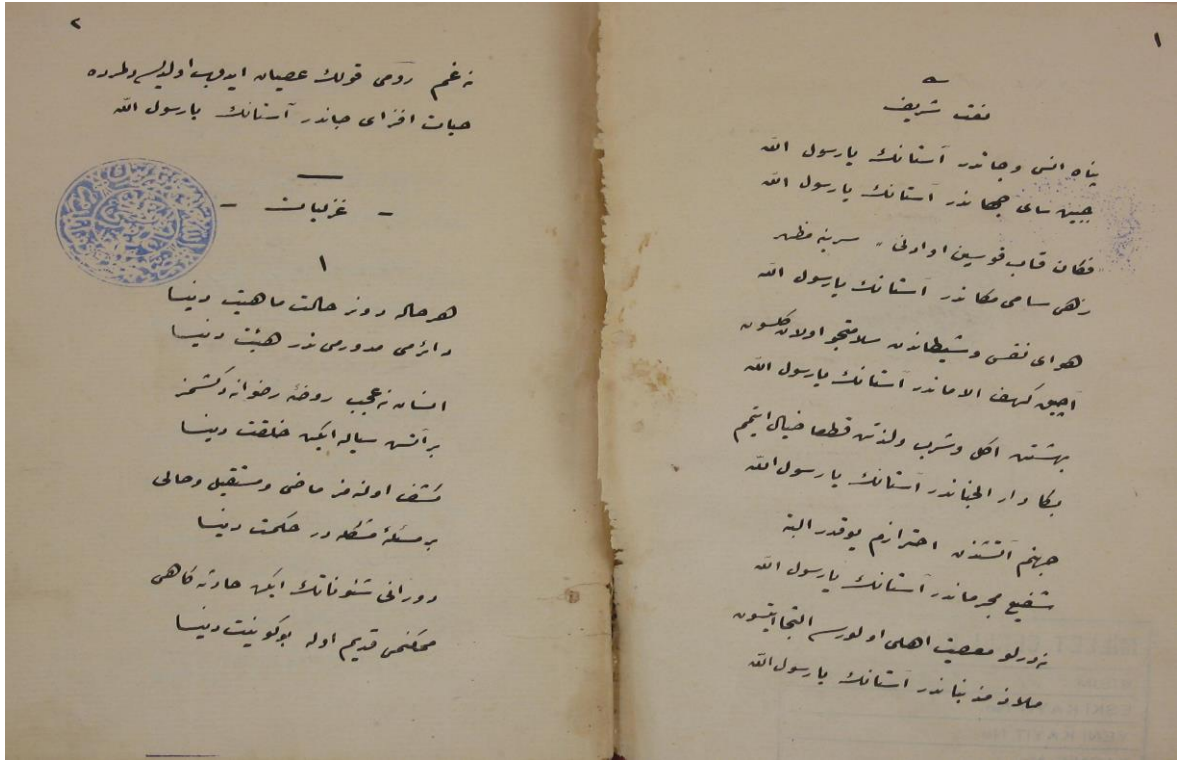 ١
نعت شريف
پناه انس وجاندر آستانك يارسول الله
جبين ساى جهاندر آستانك يارسول الله
فكان قاب قوسين او ادنى " سرينه مظهر
زهى سامى مكاندر آستانك يارسول الله
هواى نفس وشيطاندن سلامتجو اولان كلسون
آچيق كهف الاماندر آستانك يارسول الله
بهشتڭ اكل وشرب ولذتن قطعا خيال ايتمم
بكا دار الجناندر آستانك يارسول الله
جهنم آتشندن احترازم يوقدر البته
شفيع مجرماندر آستانك يارسول الله
نه درلو معصيت اهلى اولورسه التجا ايتسون
ملاذ مذنباندر آستانك يارسول الله
٢
نه غم رومى قولك عصيان ايدوب اولديسه
حيات افزاى جاندر آستانك يارسول الله
- غزليات -
١
هر حاله دونر حالت ماهيت دنيا
دائرمى مدورمى ندر هيئت دنيا
انسان نه عجب روضۀ رضوانه دكشمز
بر آتش سياله ايكن خلقت دنيا
كشف اولنه مز ماضى ومستقبل وحالى
بر مسئلۀ مشكله در حكمت دنيا
دورانى شئوناتك ايكن حادثه كاهى
ممكنمى قديم اوله بو كونيت دنيا